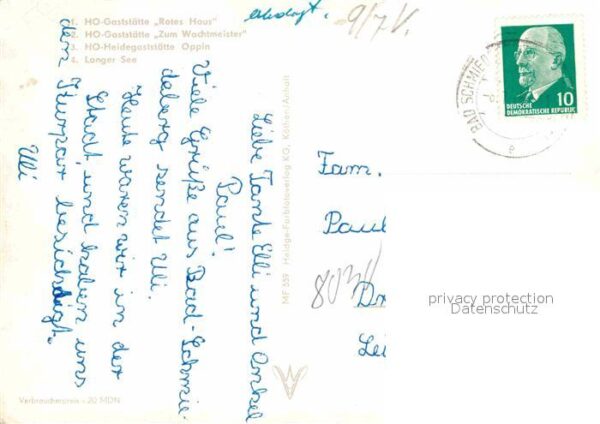 1. HO-Gaststätte „Rotes Haus"
2. HO-Gaststätte „Zum Wachtmeister"
3. HO-Heidegaststätte Oppin
4. Langer See
9/7 V.
Liebe Tante Elli und Onkel
Paul!
Viele Grüße aus Bad-Schmie-
deberg sendet Uli.
Heute waren wir in der
Stadt, und haben uns
den Kurpark besichtigt.
Uli
MF 659 Heldge-Farbfotoverlag KG, Köthen/Anhalt
Verbraucherpreis -,20 MDN
BAD SCHMIED
DEUTSCHE
DEMOKRATISCHE REPUBLIK
10
e
Fam.
Paul
Dr
Lei
privacy protection
Datenschutz